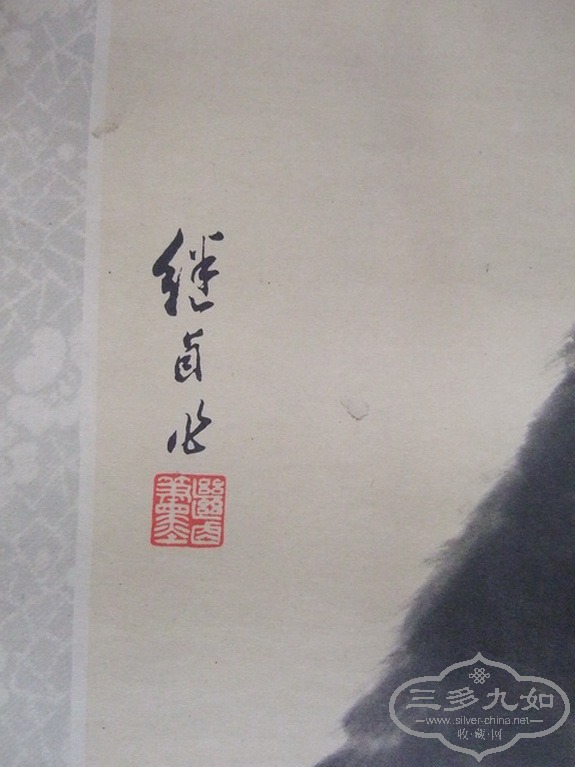 继貞作
繼貞
筆墨
三多九如
www.silver-china.net
收·藏·网